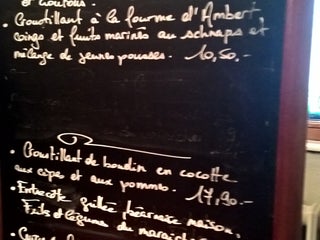 et croûtons.
• Croustillant à la fourme d'Ambert,
coings et fruits marinés au schnaps et
mélange de jeunes pousses. 10,50.-
• Croustillant de boudin en cocotte
aux cèpes et aux pommes. 17,90.-
• Entrecôte grillée, béarnaise maison,
Frits et légumes du maraîcher